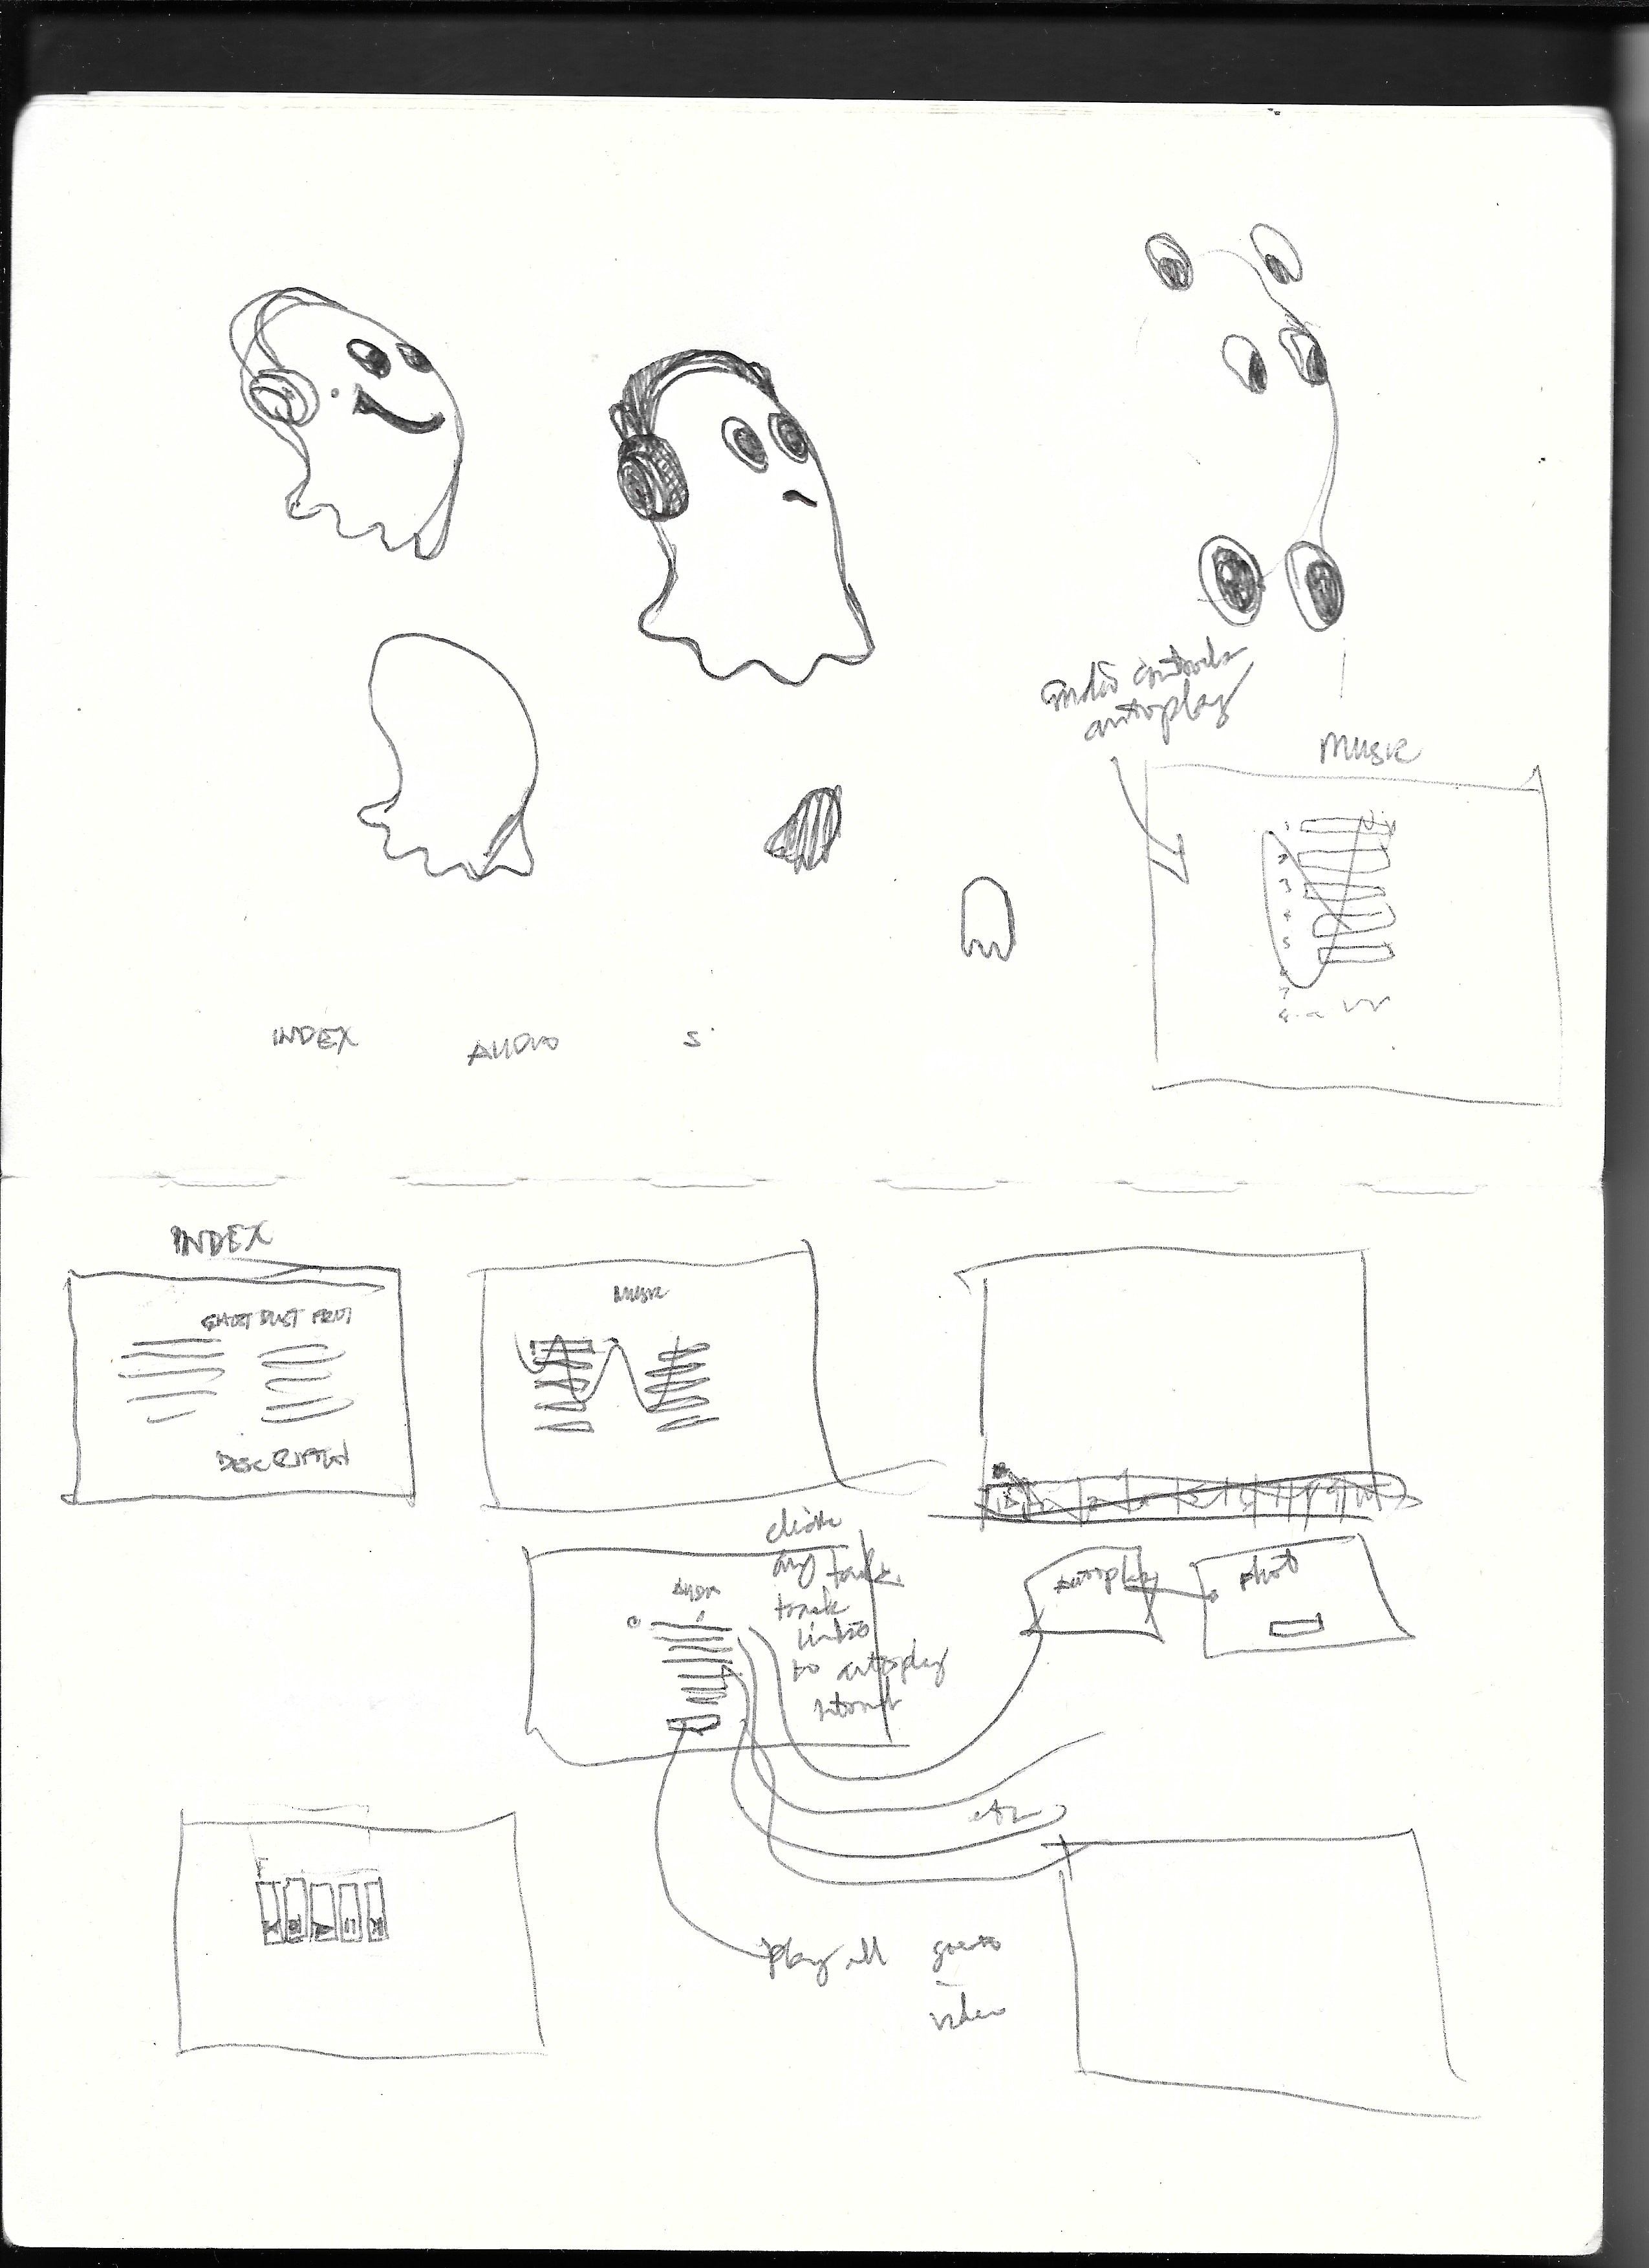 audio controls
autoplay
MUSIC
1
2
3
4
5
6
7
INDEX
AUDIO
S
INDEX
GHOST DUST
DESCRIPTION
MUSIC
click
any track
track
links
to autoplay
AUDIO
autoplay
photo
etc
play all goes to
video